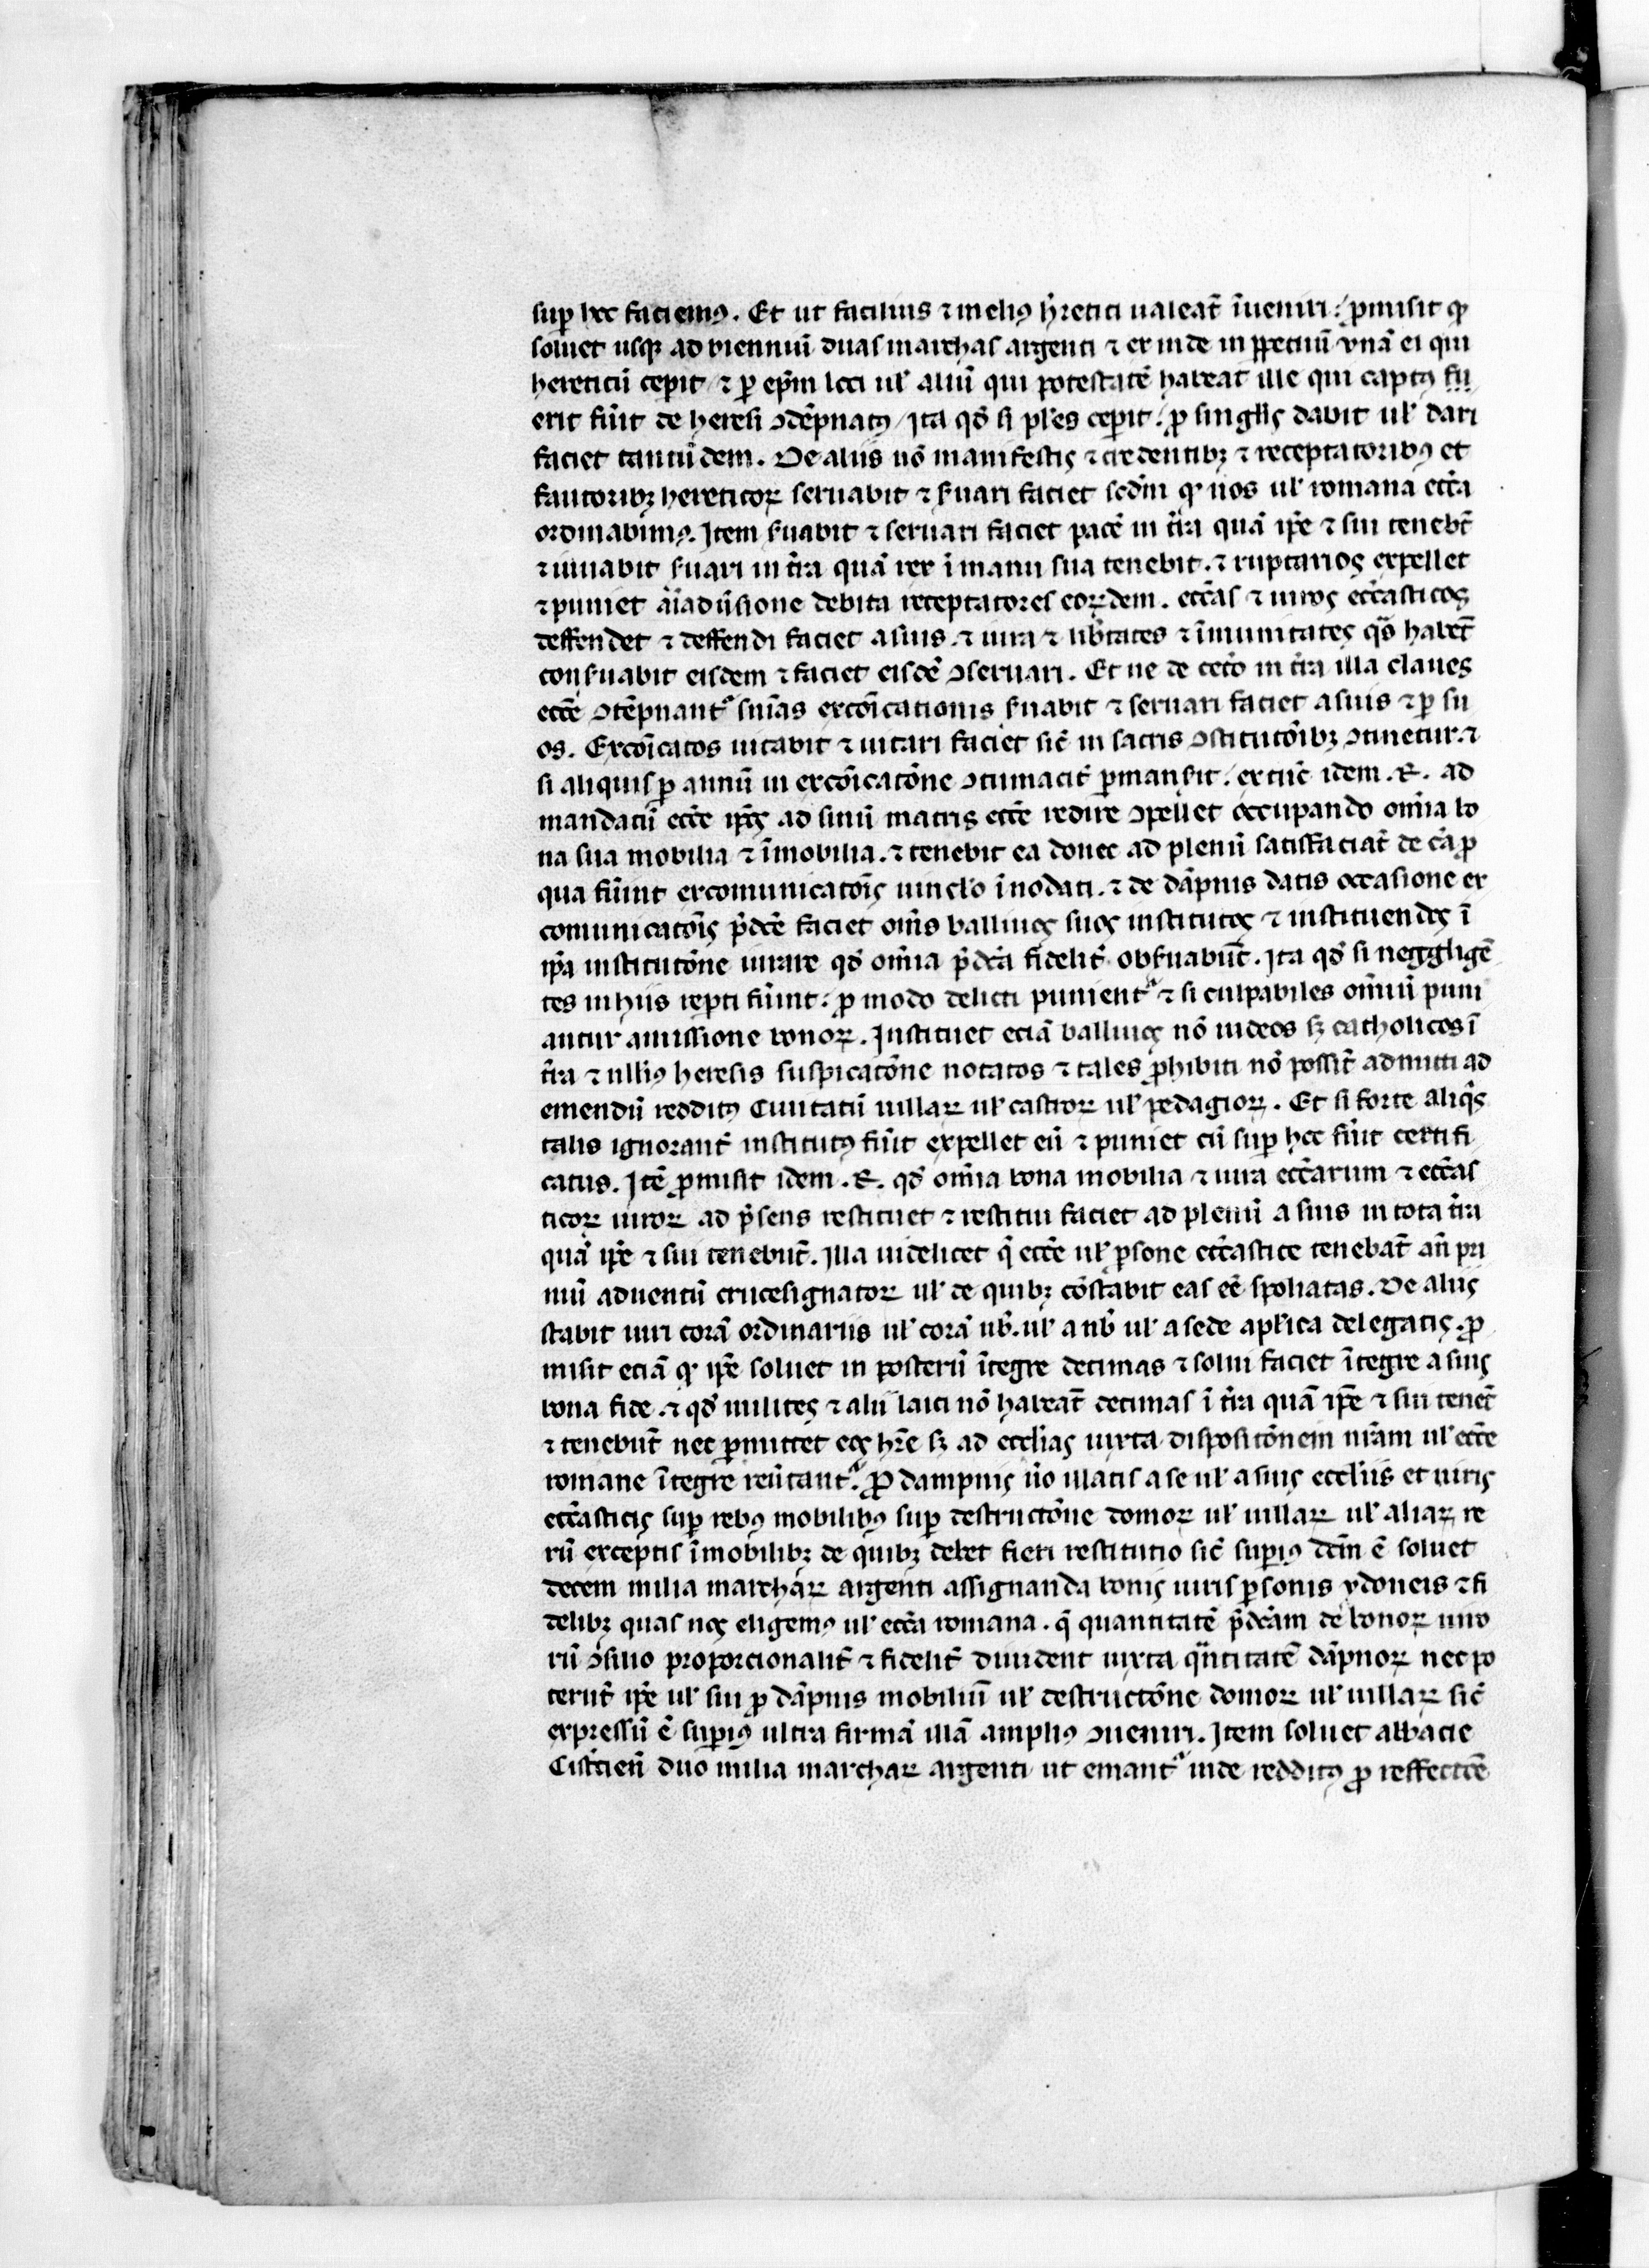 sup hec faciemꝰ. Et ut facilius ⁊ meliꝰ h̃retici ualeat̃ ĩueniri: ꝓmisit qꝫ
soluet usqꝫ ad biennuũ duas marchas argenti ⁊ ex inde in ꝑpetuũ unã ei qui
hereticũ ceperit / ⁊ ꝑ ep̃m loci ul̃ aliũ qui potestatẽ habeat ille qui captꝰ fu
erit fũit de heresi ↄdẽpnatꝰ / Ita qd̾ si pl̃es ceperit: ꝓ singl̃is dabit ul̃ dari
faciet tantũdem. De aliis nõ manifestis ⁊ credentibꝫ ⁊ receptatoribꝰ et
fautoribꝫ hereticoꝝ seruabit ⁊ ẜuari faciet sed̃m qꝫ nos ul̃ romana ecc̃a
ordinabimꝰ. Item ẜuabit ⁊ seruari faciet pacẽ in t̃ra quã ip̃e ⁊ sui tenebt̃
⁊ iuuabit ẜuari in t̃ra quã rex ĩ manu sua tenebit. ⁊ ruptarios expellet
⁊ puniet aĩaduisione debita receptatores eorꝝdem. ecc̃as ⁊ uiros ecc̃asticos
deffendet ⁊ deffendi faciet a suis. ⁊ iura ⁊ lib̃tates ⁊ ĩmunitates qs̃ habet̃
conẜuabit eisdem ⁊ faciet eisdẽ ↄseruari. Et ne de cet̃o in t̃ra illa claues
ecc̃e ↄtẽpnant᷑ sñias excõicationis ẜuabit ⁊ seruari faciet a suis ⁊ ꝑ su
os. Excõicatos uitabit ⁊ uitari faciet sic̃ in sacris ↄstitutõibꝫ ↄtinetur. ⁊
si aliquis ꝑ annũ in excõicatõne ↄtumacit̃ ꝑmanẜit. ex tũc idem .R. ad
mandatũ ecc̃e ip̃os ad sinũ matris ecc̃e redire ↄpellet occupando om̃ia bo
na sua mobilia ⁊ ĩmobilia. ⁊ tenebit ea donec ad plenũ satisfaciat̃ de c̃a ꝓ
qua fũint excomunicatõis uincl̃o ĩnodati. ⁊ de dãpnis datis occasione ex
comunicatõis p̃dc̃e faciet om̃s balliuos suos institutos ⁊ instituendos ĩ
ip̃a institutõne iurare qd̾ om̃ia p̃dc̃a fidelit̃ obẜuabũt. Ita qd̾ si neggligẽ
tes in hiis rep̃ti fũint: ꝓ modo delicti punient᷑ ⁊ si culpabiles om̃iũ puni
antur amissione bonoꝝ. Instituet eciã balliuos nõ iudeos sꝫ catholicos ĩ
t̃ra ⁊ ullius heresis suspicatõne notatos ⁊ tales ꝓhibiti nõ possĩt admitti ad
emendũ redditꝰ Ciuitatũ uillaꝝ ul̃ castroꝝ ul̃ pedagioꝝ. Et si forte aliqͥs
talis ignorant̃ institutꝰ fũit expellet eũ ⁊ puniet cũ sup hec fũit certifi
catus. Itẽ ꝓmisit idem .R. qd̾ om̃ia bona mobilia ⁊ iura ecc̃arum ⁊ ecc̃as
ticoꝝ uiroꝝ ad p̃sens restituet ⁊ restitui faciet ad plenũ a suis in tota t̃ra
quã ip̃e ⁊ sui tenebũt. Illa uidelicet q̃ ecc̃e ul̃ ꝑsone ecc̃astice tenebãt añ pri
mũ aduentũ crucesignatoꝝ ul̃ de quibꝫ cõstabit eas eẽ spoliatas. De aliis
stabit iuri corã ordinariis ul̃ corã ub̾. ul̃ a nb̾ ul̃ a sede apl̃ica delegatis. ꝓ
misit eciã qꝫ ip̃e soluet in posterũ ĩtegre decimas ⁊ solui faciet ĩtegre a suis
bona fide. ⁊ qd̾ milites ⁊ alii laici nõ habeãt decimas ĩ t̃ra quã ip̃e ⁊ sui tenet̃
⁊ tenebũt nec ꝑmittet eos h̃re sꝫ ad eccl̃ias iuxta dispositõnem nr̃am ul̃ ecc̃e
romane ĩtegre reũtant᷑. Pro dampnis ũo illatis a se ul̃ a suis eccl̃iis et uiris
ecc̃asticis sup rebꝰ mobilibꝰ sup destructõne domoꝝ ul̃ uillaꝝ ul̃ aliaꝝ re
rũ exceptis ĩmobilibꝫ de quibꝫ debet fieri restitutio sic̃ supiꝰ dc̃m ẽ soluet
decem milia marchaꝝ argenti assignanda bonis uiris ꝑsonis ydoneis ⁊ fi
delibꝫ quas nos eligemꝰ ul̃ ecc̃a romana. q̃ quantitatẽ p̃dc̃am de bonoꝝ uiro
rũ ↄsilio proporcionalit̃ ⁊ fidelit̃ diuident iuxta qͣntitatẽ dãpnoꝝ nec po
terũt ip̃e ul̃ sui ꝓ dãpnis mobiliũ ul̃ destructõne domoꝝ ul̃ uillaꝝ sic̃
expressũ ẽ supiꝰ ultra firmã illã ampliꝰ ↄueniri. Item soluet abbacie
Cistercień duo milia marchaꝝ argenti ut emant᷑ inde redditꝰ ꝓ reffectõẽ